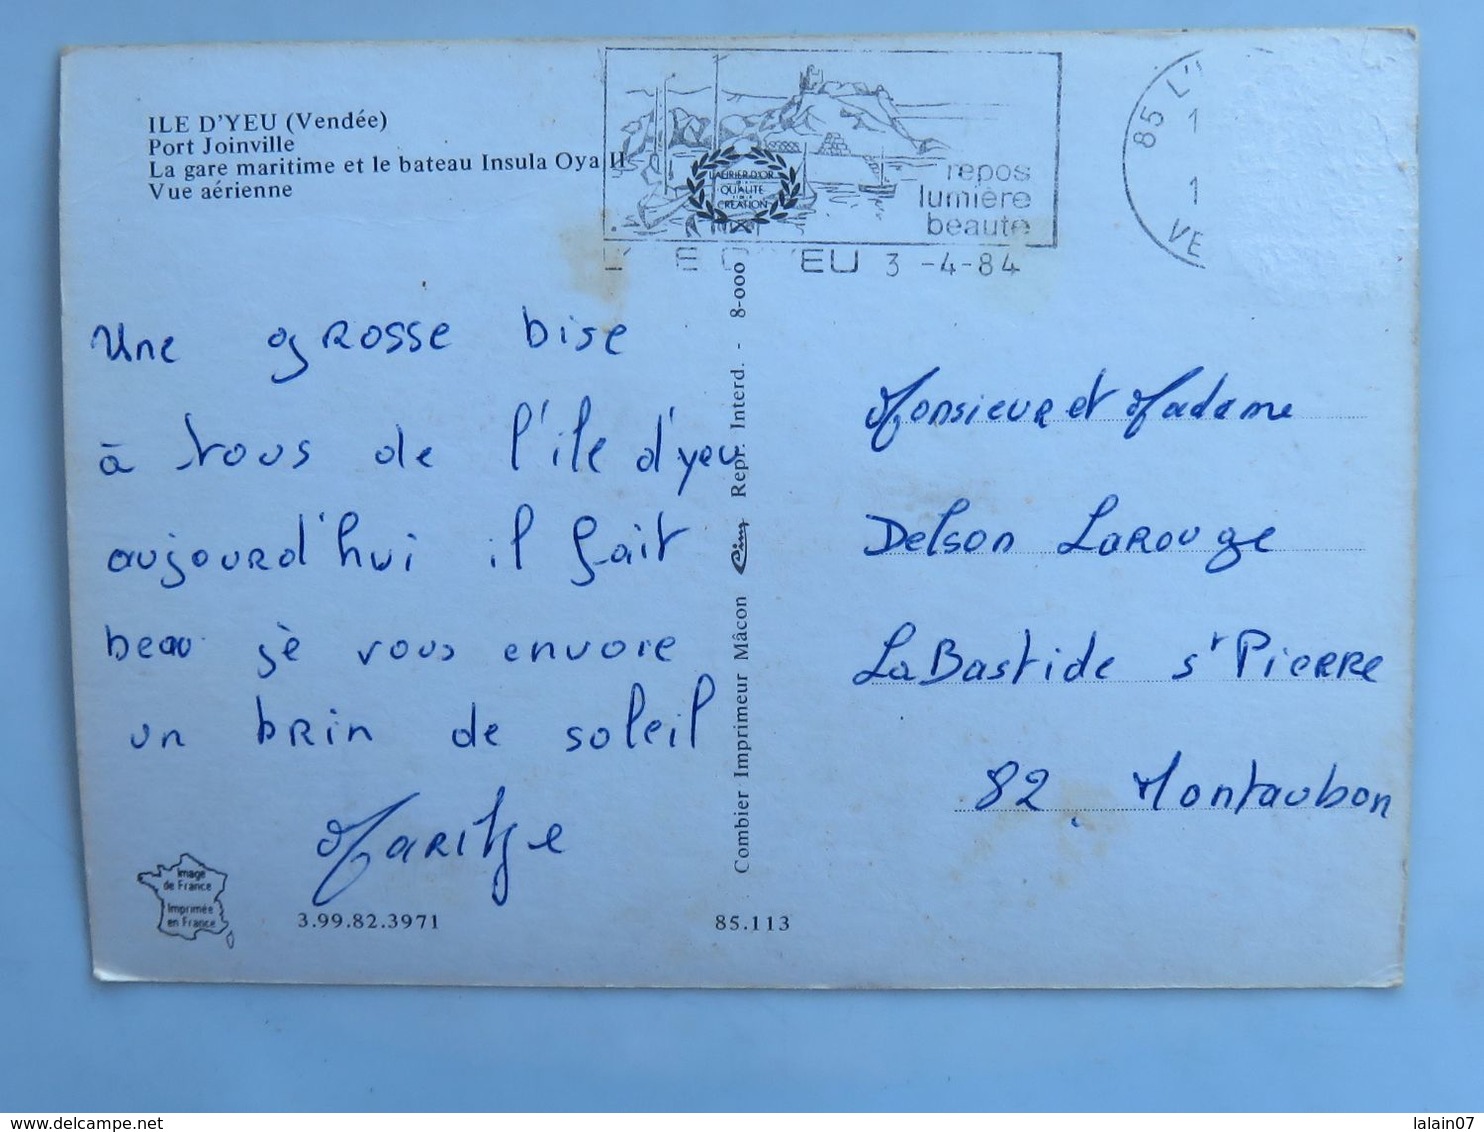 ILE D'YEU (Vendée)
Port Joinville
La gare maritime et le bateau Insula Oya II
Vue aérienne
LAURIER D'OR
QUALITE
CREATION
repos
lumière
beauté
YEU 3 -4-84
85 L'
1
1
VE
Une grosse bise
à tous de l'ile d'yeu
aujourd'hui il fait
beau je vous envoie
un brin de soleil
Maritze
Monsieur et Madame
Delson Larouge
La Bastide St Pierre
82 Montaubon
Combier Imprimeur Mâcon Cim Repr. Interd. - 8-000
Image
de France
Imprimée
en France
3.99.82.3971
85.113
delcampe.net
lalain07